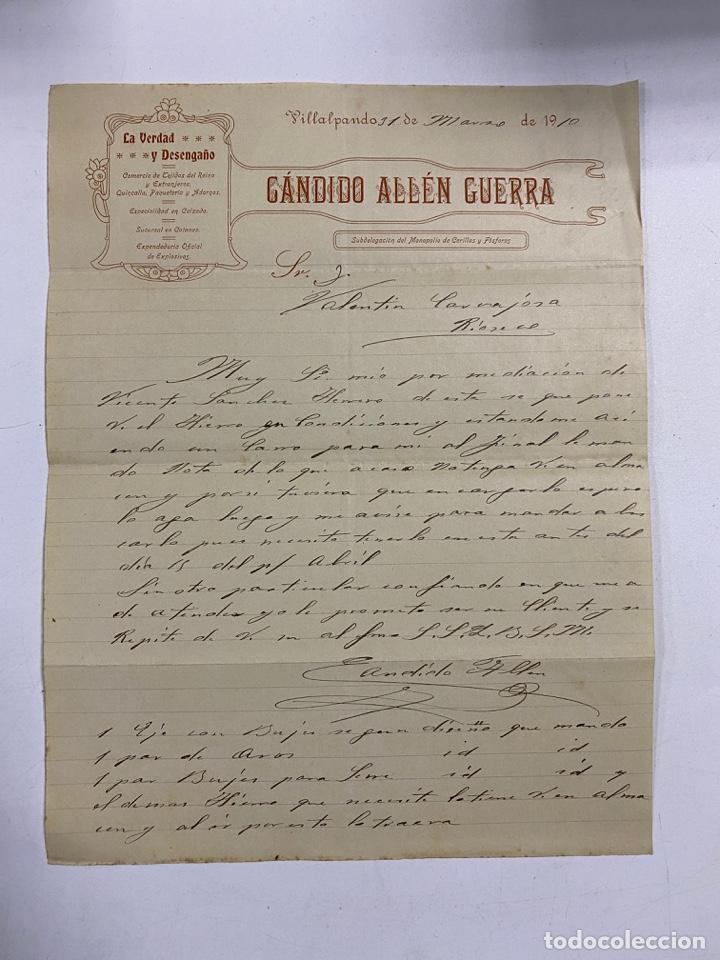 Villalpando 31 de Marzo de 1910
La Verdad
y Desengaño
Comercio de Tejidos del Reino
y Extranjeros,
Quincalla, Paquetería y Adornos.
Especialidad en Calzado.
Sucursal en Cotanes.
Expendeduría Oficial
de Explosivos.
CÁNDIDO ALLÉN GUERRA
Subdelegación del Monopolio de Cerillas y Fósforos
Sr. D.
Valentin Carvajosa
Rioseco
Muy Sr. mio por mediación de
Vicente Sanchez Herrero de esta se que pone
V. el Hierro en Condiciones y estandome aci
endo un Carro para mi al Final le man
do Nota de lo que acaso No tenga V. en alma
cen y por si tuviera que encargarlo espero
lo aga luego y me avise para mandar a bus
carlo pues necesito tenerlo en esta antes del
dia 15 del p/ Abril
Sin otro particular confiando en que me a
de atender yo le prometo ser su Cliente y se
Repite de V. su af S. S. Q. B. S. M.
Candido Allen
1 Eje con Bujes segun diseño que mando
1 par de Aros id id
1 par Bujes para id id y
el demas Hierro que necesite lo tiene V. en alma
cen y al ir por esto lo traera
todocoleccion.net